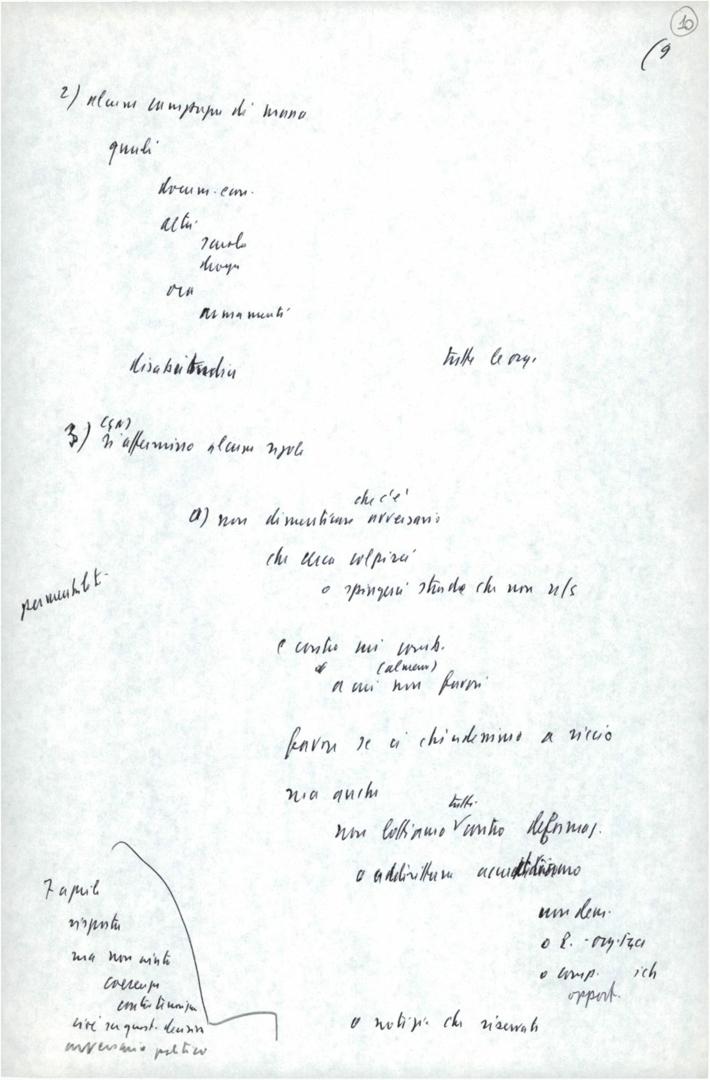 10
(9
2) alcune campagne di massa
quali
docum. con.
altri
scuola
droga
ora
armamenti
tutte le org.
3) si affermino alcune regole
a) non dimenticare che c'è avversario
che cerca colpirci
o spingerci strada che non n/s
e contro cui comb.
(almeno)
a cui non favori
favori se ci chiudessimo a riccio
ma anche
tutti
non lottiamo contro deformaz.
o addirittura
non dem.
o comp.
opport.
o notizie che riservate
permeabilit.
7 aprile
risposta
ma non vinta
coerenza
continuazione
cioè su quest.
avversario politico